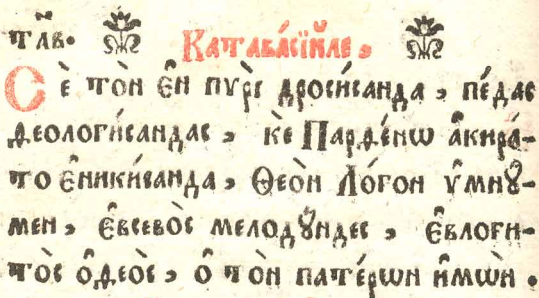 тл҃в. Катава́сїиле,
Сѐ то̀н є̓н пѵрѝ дроси́санда, пе́дас
ѳеологи́сандас, кѐ Парѳе́нѡ а̓кира́-
то є̓ники́санда, Ѳео̀н Ло́гон ѵ̓мнꙋ̑-
мен, є̓всево̀с мелодꙋ̑ндес, є̓влоги-
то̀с о̓ѳео̀с, о̓ то̀н пате́рѡн и̓мѡ̀н.